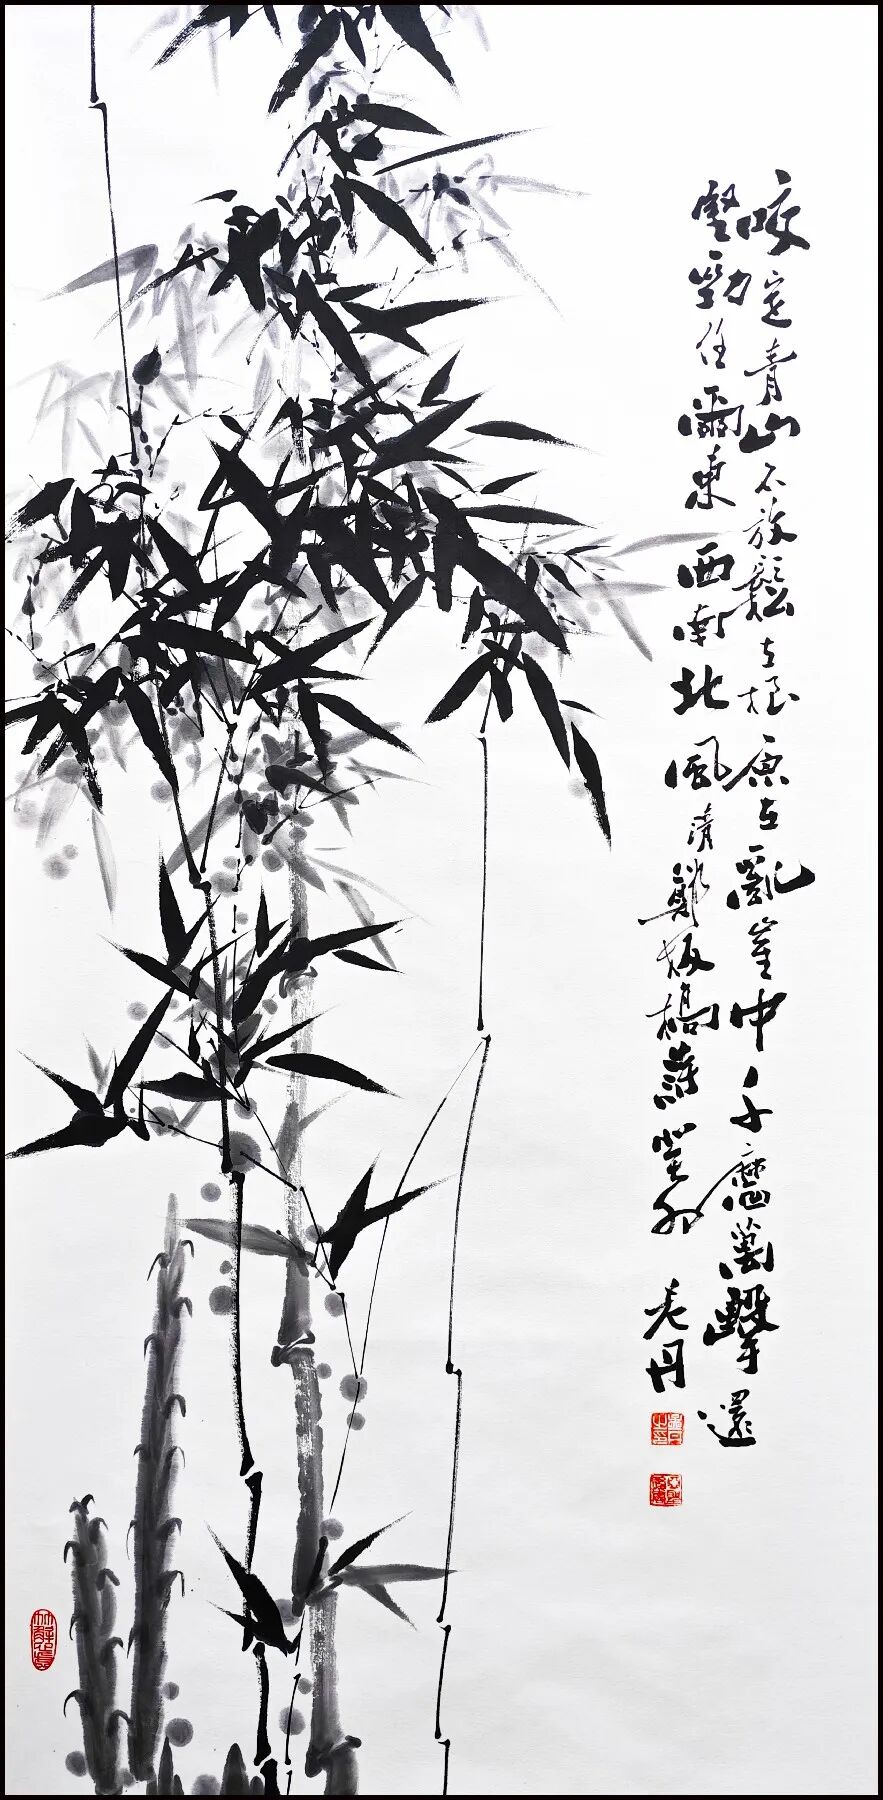 咬定青山不放鬆立根原在亂崖中千磨萬擊還
堅勁任爾東西南北風清鄭板橋詩癸卯
老丹